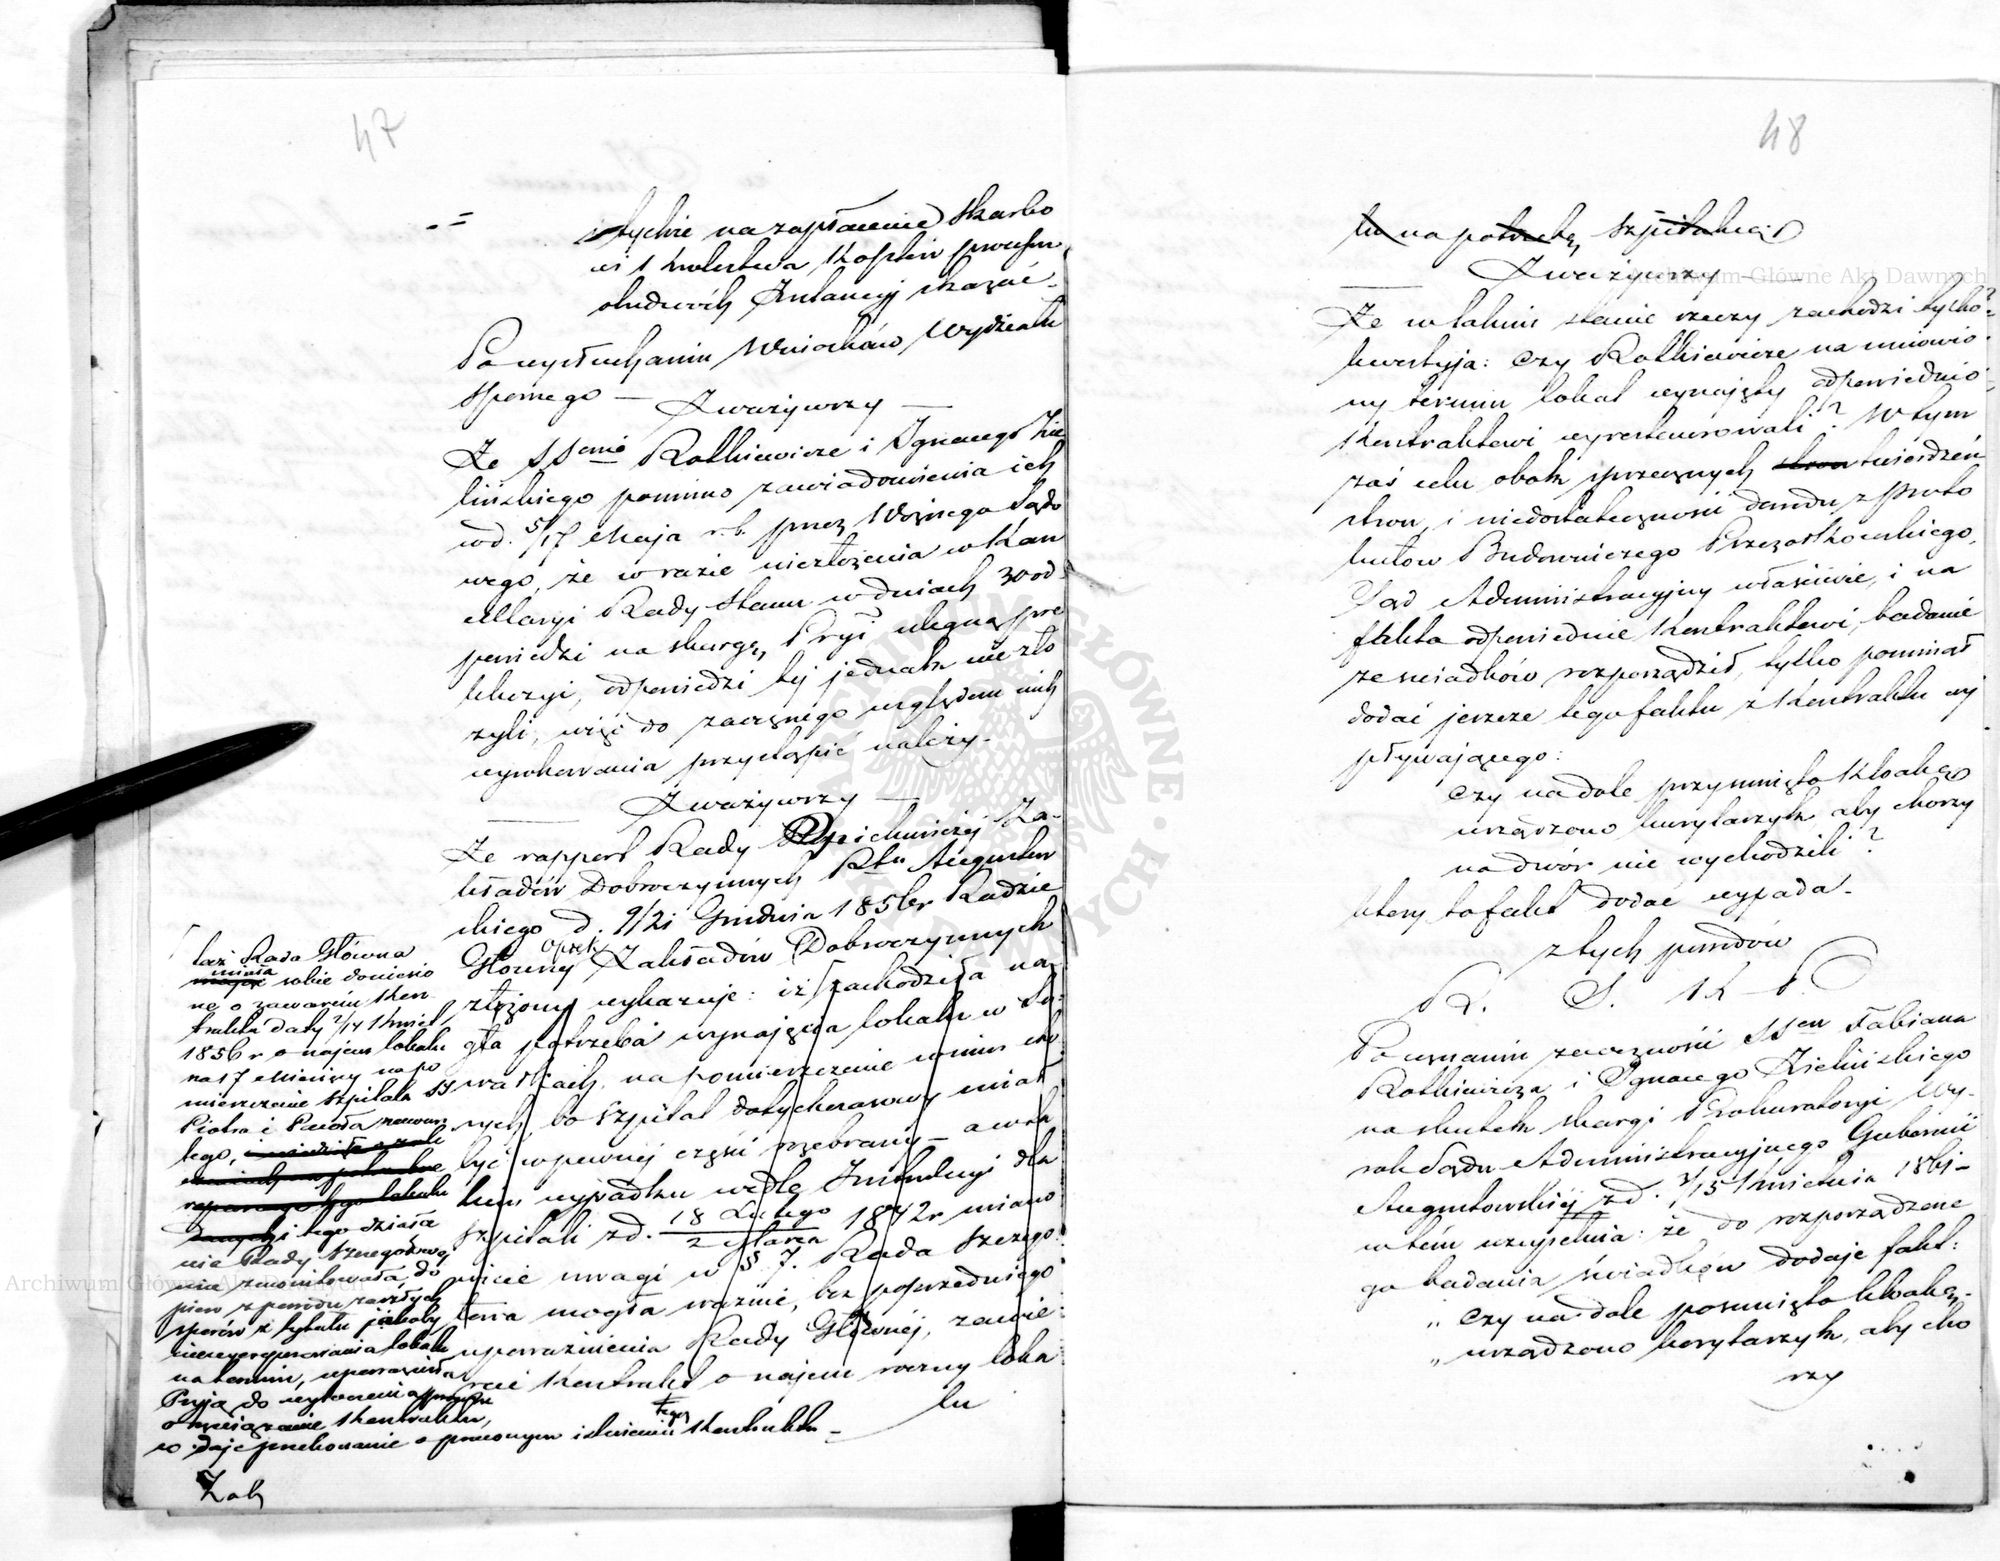 47
tychże na zapłacenie Skarbo
wi Królestwa Kosztów processu
obudwóch Instancyj skazać.
Po wysłuchaniu Wniosków Wydziału
Spornego —
Zważywszy —
Że SSowie Rotkiewicze i Ignacego Zie
lińskiego pomimo zawiadomienia ich
w d. 5/17 Maja r. b. przez Woźnego Sądo
wego, że w razie niezłożenia w Kan
cellaryi Rady Stanu w dniach 30 od
powiedzi na skargę, Pryi ulegną pre
kluzyi, odpowiedzi tej jednak nie zło
żyli, więc do zaocznego względem nich
wyrokowania przystąpić należy.
Zważywszy —
Że rapport Rady Opiekuńczej Za-
kładów Dobroczynnych Ptu Augustow
skiego d. 9/21 Grudnia 1856 r Radzie
Głównej Opiek. Zakładów Dobroczynnych
złożony wykazuje: iż zachodziła na
gła potrzeba wynajęcia lokalu w Su-
wałkach na pomieszczenie w nim cho
rych, bo szpital dotychczasowy miał
być w pewnej części rozebrany — a w ta
kim wypadku wedle Instrukcyi dla
szpitali z d. 18 Lutego / 2 Marca 1842 r miano
wicie uwagi w § 7. Rada Szczegó
łowa mogła ważnie, bez poprzedniego
upoważnienia Rady Głównej, zawie
rać Kontrakt o najem roczny loka
lu
taż Rada Główna
mając miała sobie doniesio
ne o zawarciu Kon
traktu daty 2/14 Kwiet
1856 r o najem lokalu
na 17 Miesięcy na po
mieszczenie szpitala SS
Piotra i Pawła zawar
tego,
i tego działa
nie Rady Szczegółowej
nie zmonitowała, do
piero z powodu zaszłych
sporów z tytułu jakoby
niewyreperowania lokalu
na termin, upoważniła
Pryją do wytoczenia
o rozwiązanie Kontraktu,
co daje przekonanie o prawnym istnieniu tego Kontraktu —
Zob
48
lu na potrzebę szpitalną
Zważywszy —
Że w takim stanie rzeczy zachodzi tylko
kwestyja: czy Rotkiewicze na umówio
ny termin lokal wynajęty odpowiednio
Kontraktowi wyrestaurowali? W tym
zaś celu obok sprzecznych stron twierdzeń
stron, i niedostateczności dowodu z Proto
kułów Budowniczego Przezorkowskiego,
Sąd Administracyjny właściwie, i na
fakta odpowiednie Kontraktowi, badanie
ze świadków rozporządził, tylko pominął
dodać jeszcze tego faktu z Kontraktu wy
pływającego:
czy na dole przymknięto Kloakę
urządzono kurytarzyk aby chorzy
na dwór nie wychodzili?
który to fakt dodać wypada.
z tych powodów
R. S. K. P.
Po uznaniu zaoczności SSów Fabiana
Rotkiewicza i Ignacego Zielińskiego
na skutek skargi Prokuratoryi Wy-
rok Sądu Administracyjnego Gubernii
Augustowskiej z d. 3/15 Kwietnia 1861 —
w tem uzupełnia: że do rozporządzone
go badania świadków dodaje fakt:
„ czy na dole posunięto kloakę —
„ urządzono korytarzyk, aby cho
rzy
Archiwum Główne Akt Dawnych
Archiwum Główne Akt Dawnych
ARCHIWUM GŁÓWNE AKT DAWNYCH